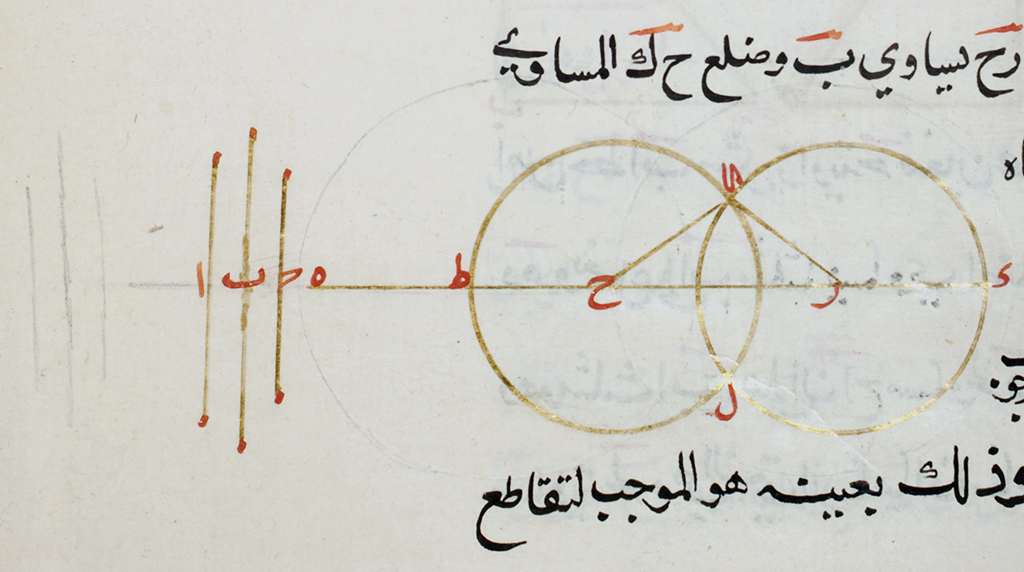 رح يساوي ب وضلع ح ك المساوي
اه
ك
ا ب ح ه ط ح ر ء
ل
وذلك بعينه هو الموجب لتقاطع